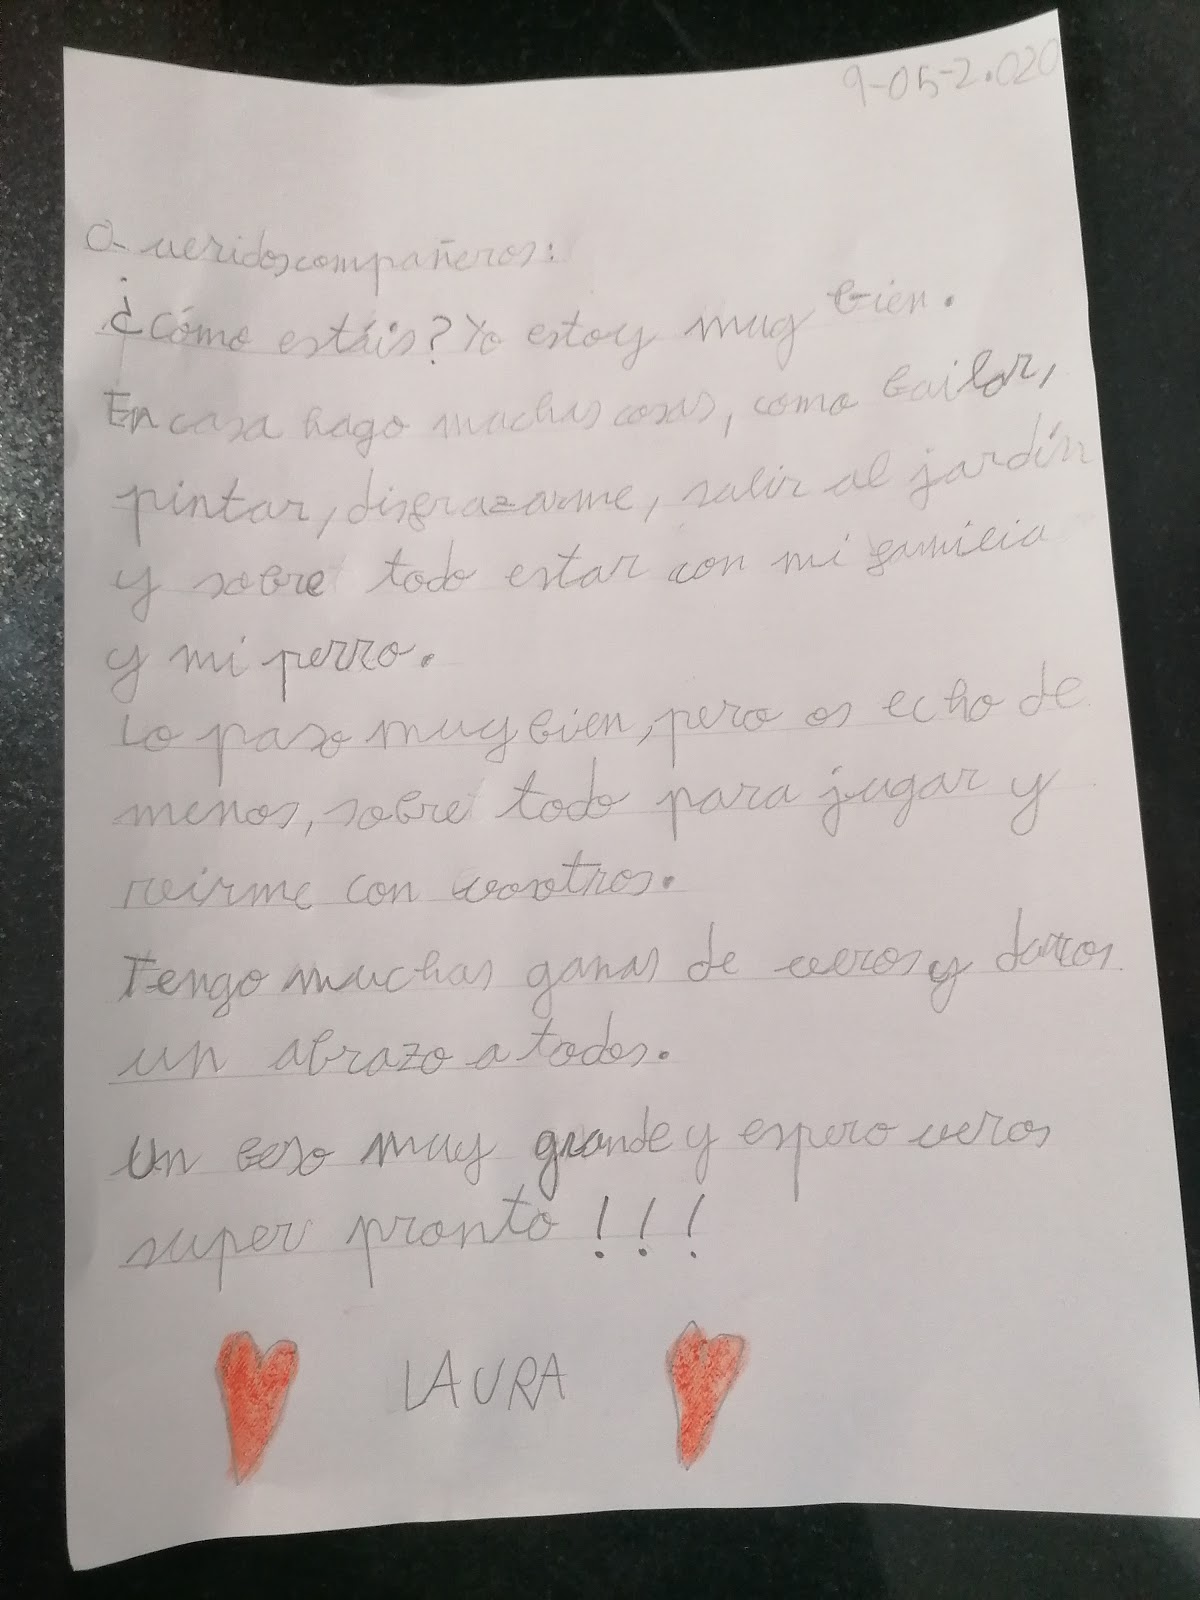 9-05-2.020
Queridos compañeros:
¿Cómo estáis? Yo estoy muy bien.
En casa hago muchas cosas, como bailar,
pintar, disfrazarme, salir al jardín
y sobre todo estar con mi familia
y mi perro.
Lo paso muy bien, pero os echo de
menos, sobre todo para jugar y
reirme con vosotros.
Tengo muchas ganas de veros y daros
un abrazo a todos.
Un beso muy grande y espero veros
super pronto!!!
LAURA